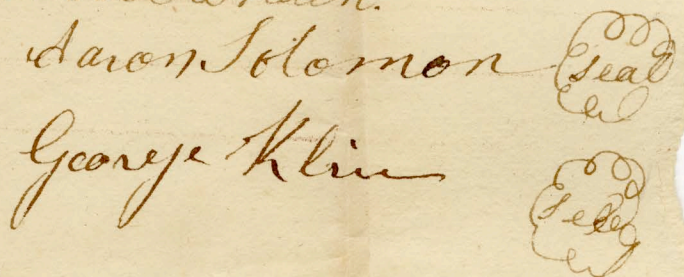 Aaron Solomon seal
George Klin seal